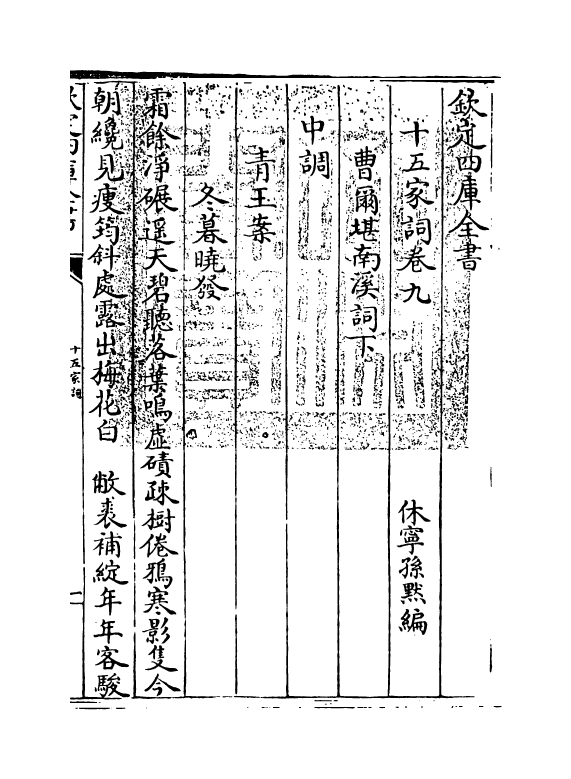 欽定四庫全書
十五家詞卷九
休寧孫黙編
曹爾堪南溪詞下
中調
青玉案
冬暮曉發
霜餘淨碾遥天碧聽落葉鳴虚磧疎樹倦鴉寒影隻今
朝纔見瘦筠斜處露出梅花白　敝裘補綻年年客駿
欽定四庫全書
十五家詞
一